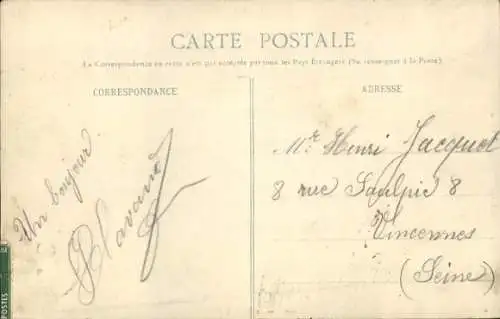 CARTE POSTALE
La Correspondance au recto n'est pas acceptée par tous les Pays Étrangers (Se renseigner à la Poste)
CORRESPONDANCE
ADRESSE
Un bonjour
Mr Henri Jacquot
8 rue Saulpic 8
Vincennes
(Seine)
POSTES